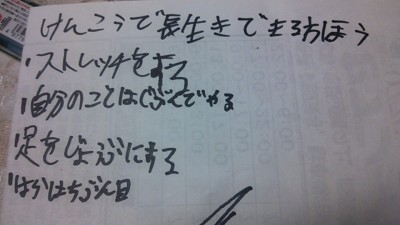 けんこうで長生きできる方ほう
・ストレッチをする
・自分のことはじぶんでやる
・足をじょぶにする
・はらはちぶん目